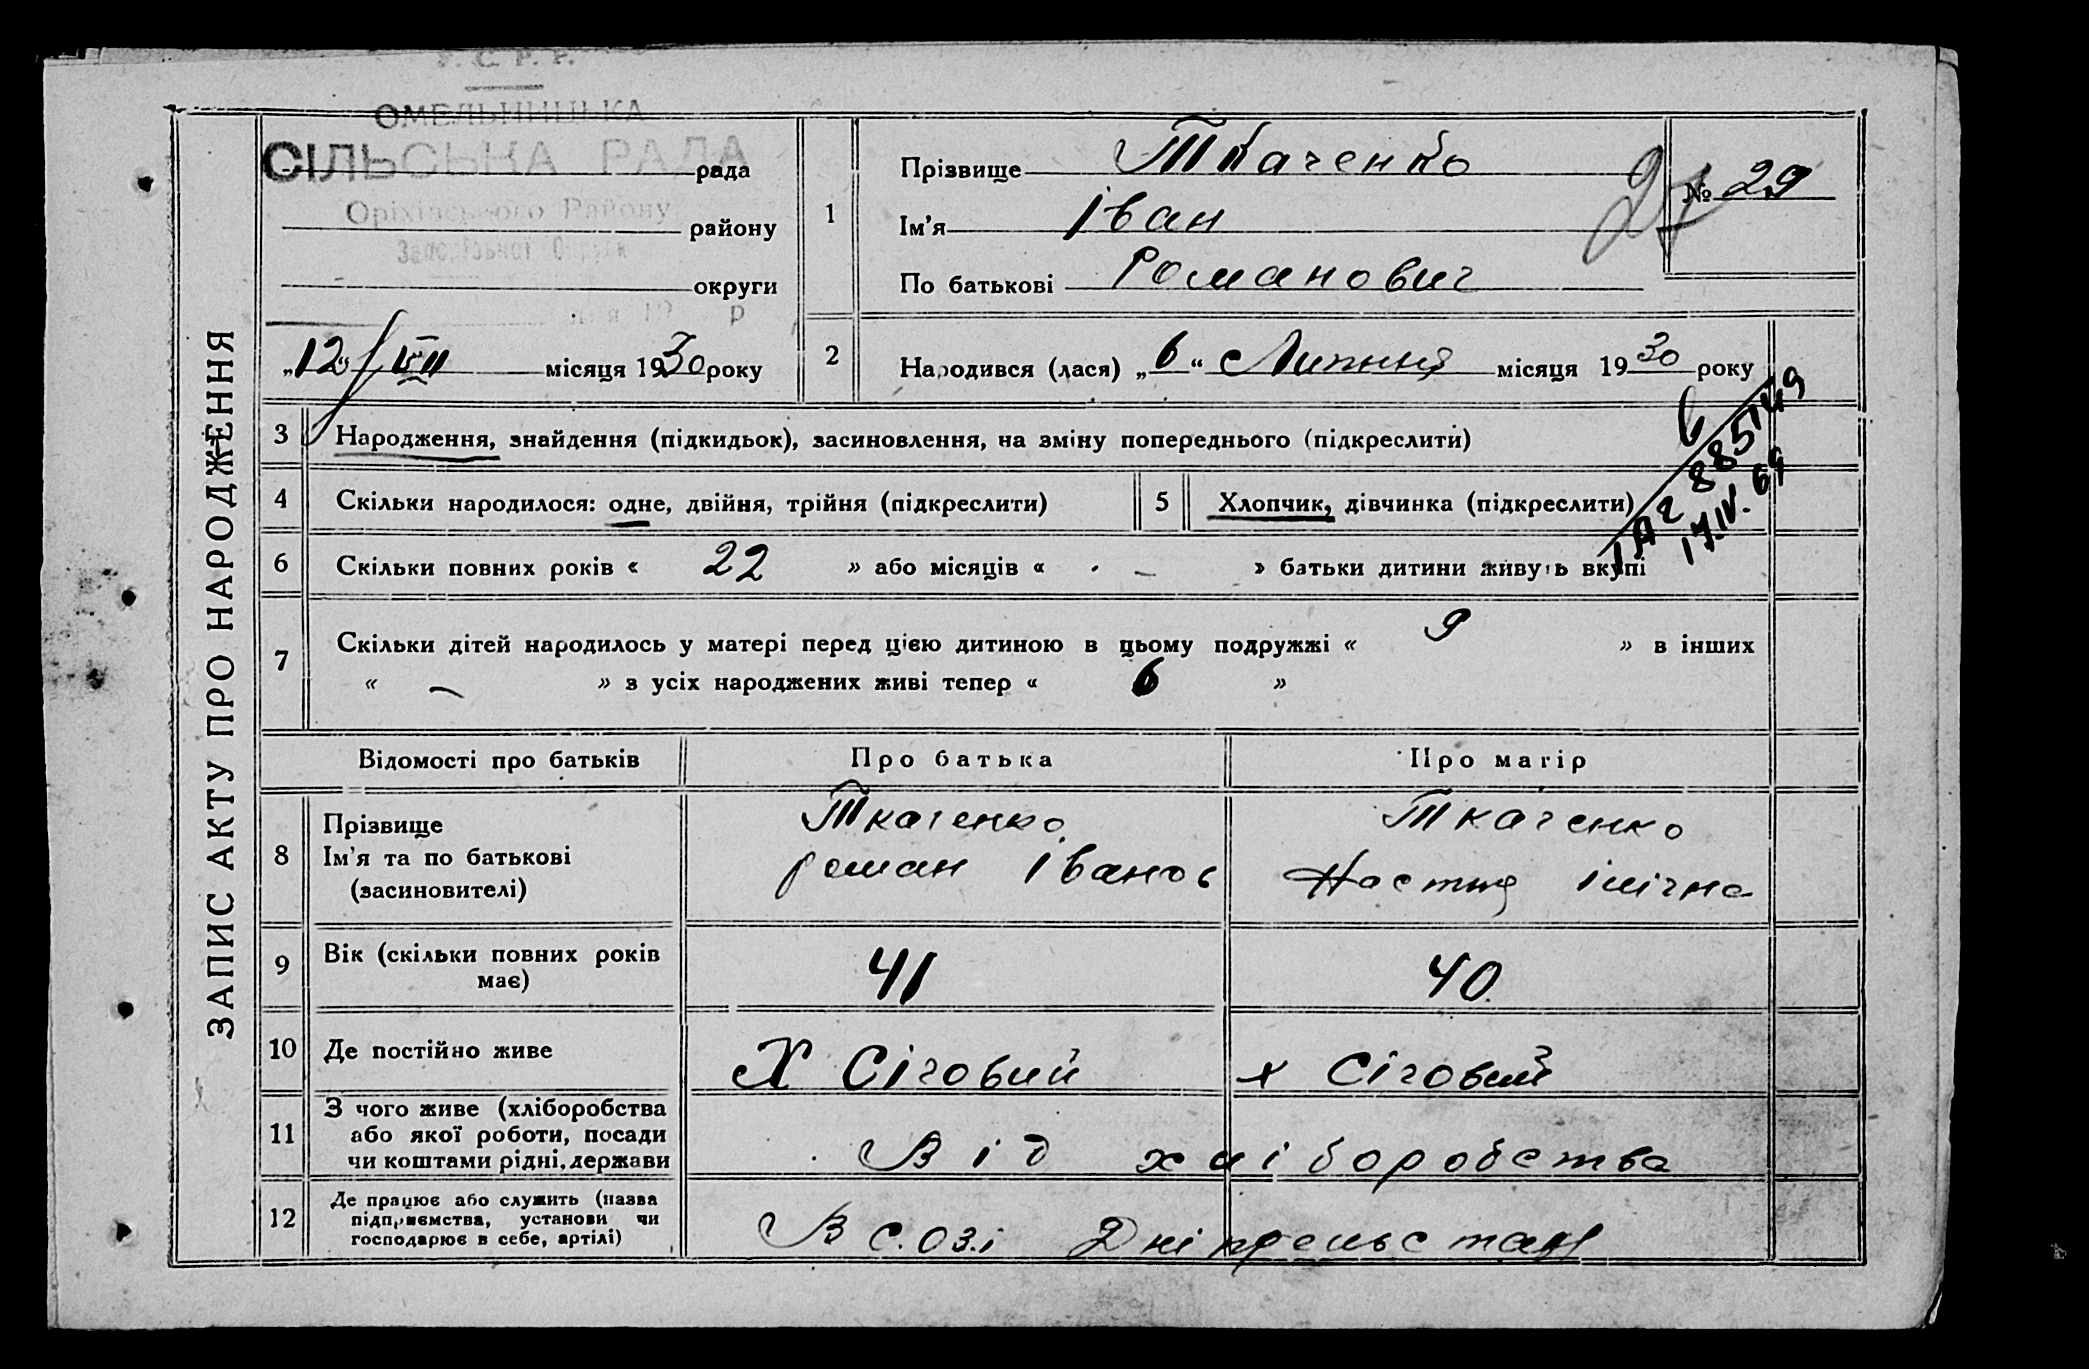 У. С. Р. Р.
ОМЕЛЬНИЦЬКА
СІЛЬСЬКА РАДА
рада
Оріхівського Району
району
Запорізької Округи
округи
„12“ VII місяця 1930 року
ЗАПИС АКТУ ПРО НАРОДЖЕННЯ
1
Прізвище Ткаченко
Ім’я Іван
По батькові Романович
№ 29
27
2
Народився (лася) „6“ Липння місяця 1930 року
3 Народження, знайдення (підкидьок), засиновлення, на зміну попереднього (підкреслити)
4 Скільки народилося: одне, двійня, трійня (підкреслити)
5 Хлопчик, дівчинка (підкреслити)
885149
17.IV.69
6 Скільки повних років « 22 » або місяців « — » батьки дитини живуть вкупі
7 Скільки дітей народилось у матері перед цією дитиною в цьому подружжі « 9 » в інших
« — » з усіх народжених живі тепер « 6 »
Відомості про батьків Про батька Про матір
8 Прізвище
Ім’я та по батькові
(засиновителі)
Ткаченко
роман Іванов
Ткаченко
Настя
9 Вік (скільки повних років
має)
41
40
10 Де постійно живе Х Січовий х Січовий
11 З чого живе (хліборобства
або якої роботи, посади
чи коштами рідні, держави
Від хліборобства
12 Де працює або служить (назва
підприємства, установи чи
господарює в себе, артілі)
В С.О.З.і